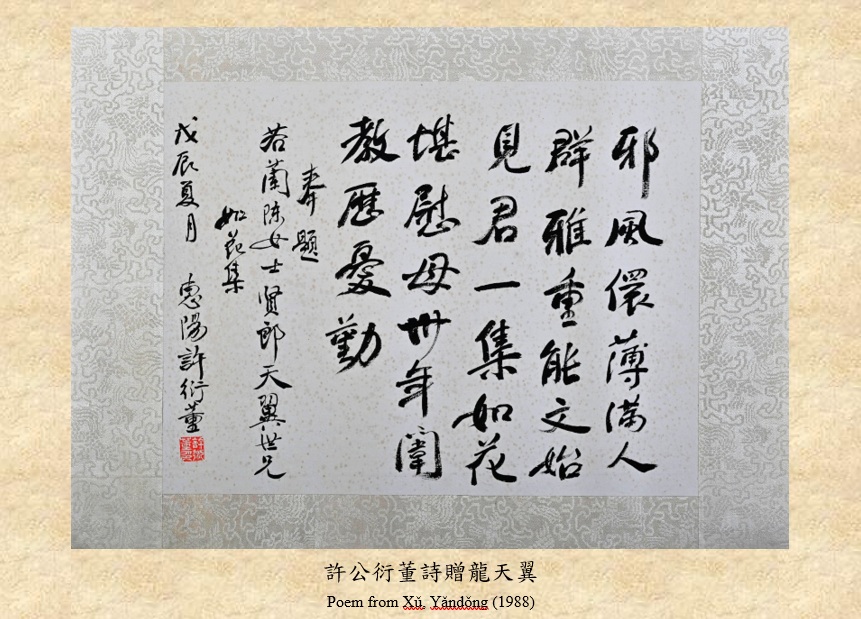 邪風儇薄滿人
群雅重能文始
見君一集如花
堪慰母卅年閫
教歷憂勤
奉題
若蘭陳女士賢郎天翼世兄
如花集
戊辰夏月 惠陽許衍董
許公衍董詩贈龍天翼
Poem from Xǔ, Yǎndǒng (1988)